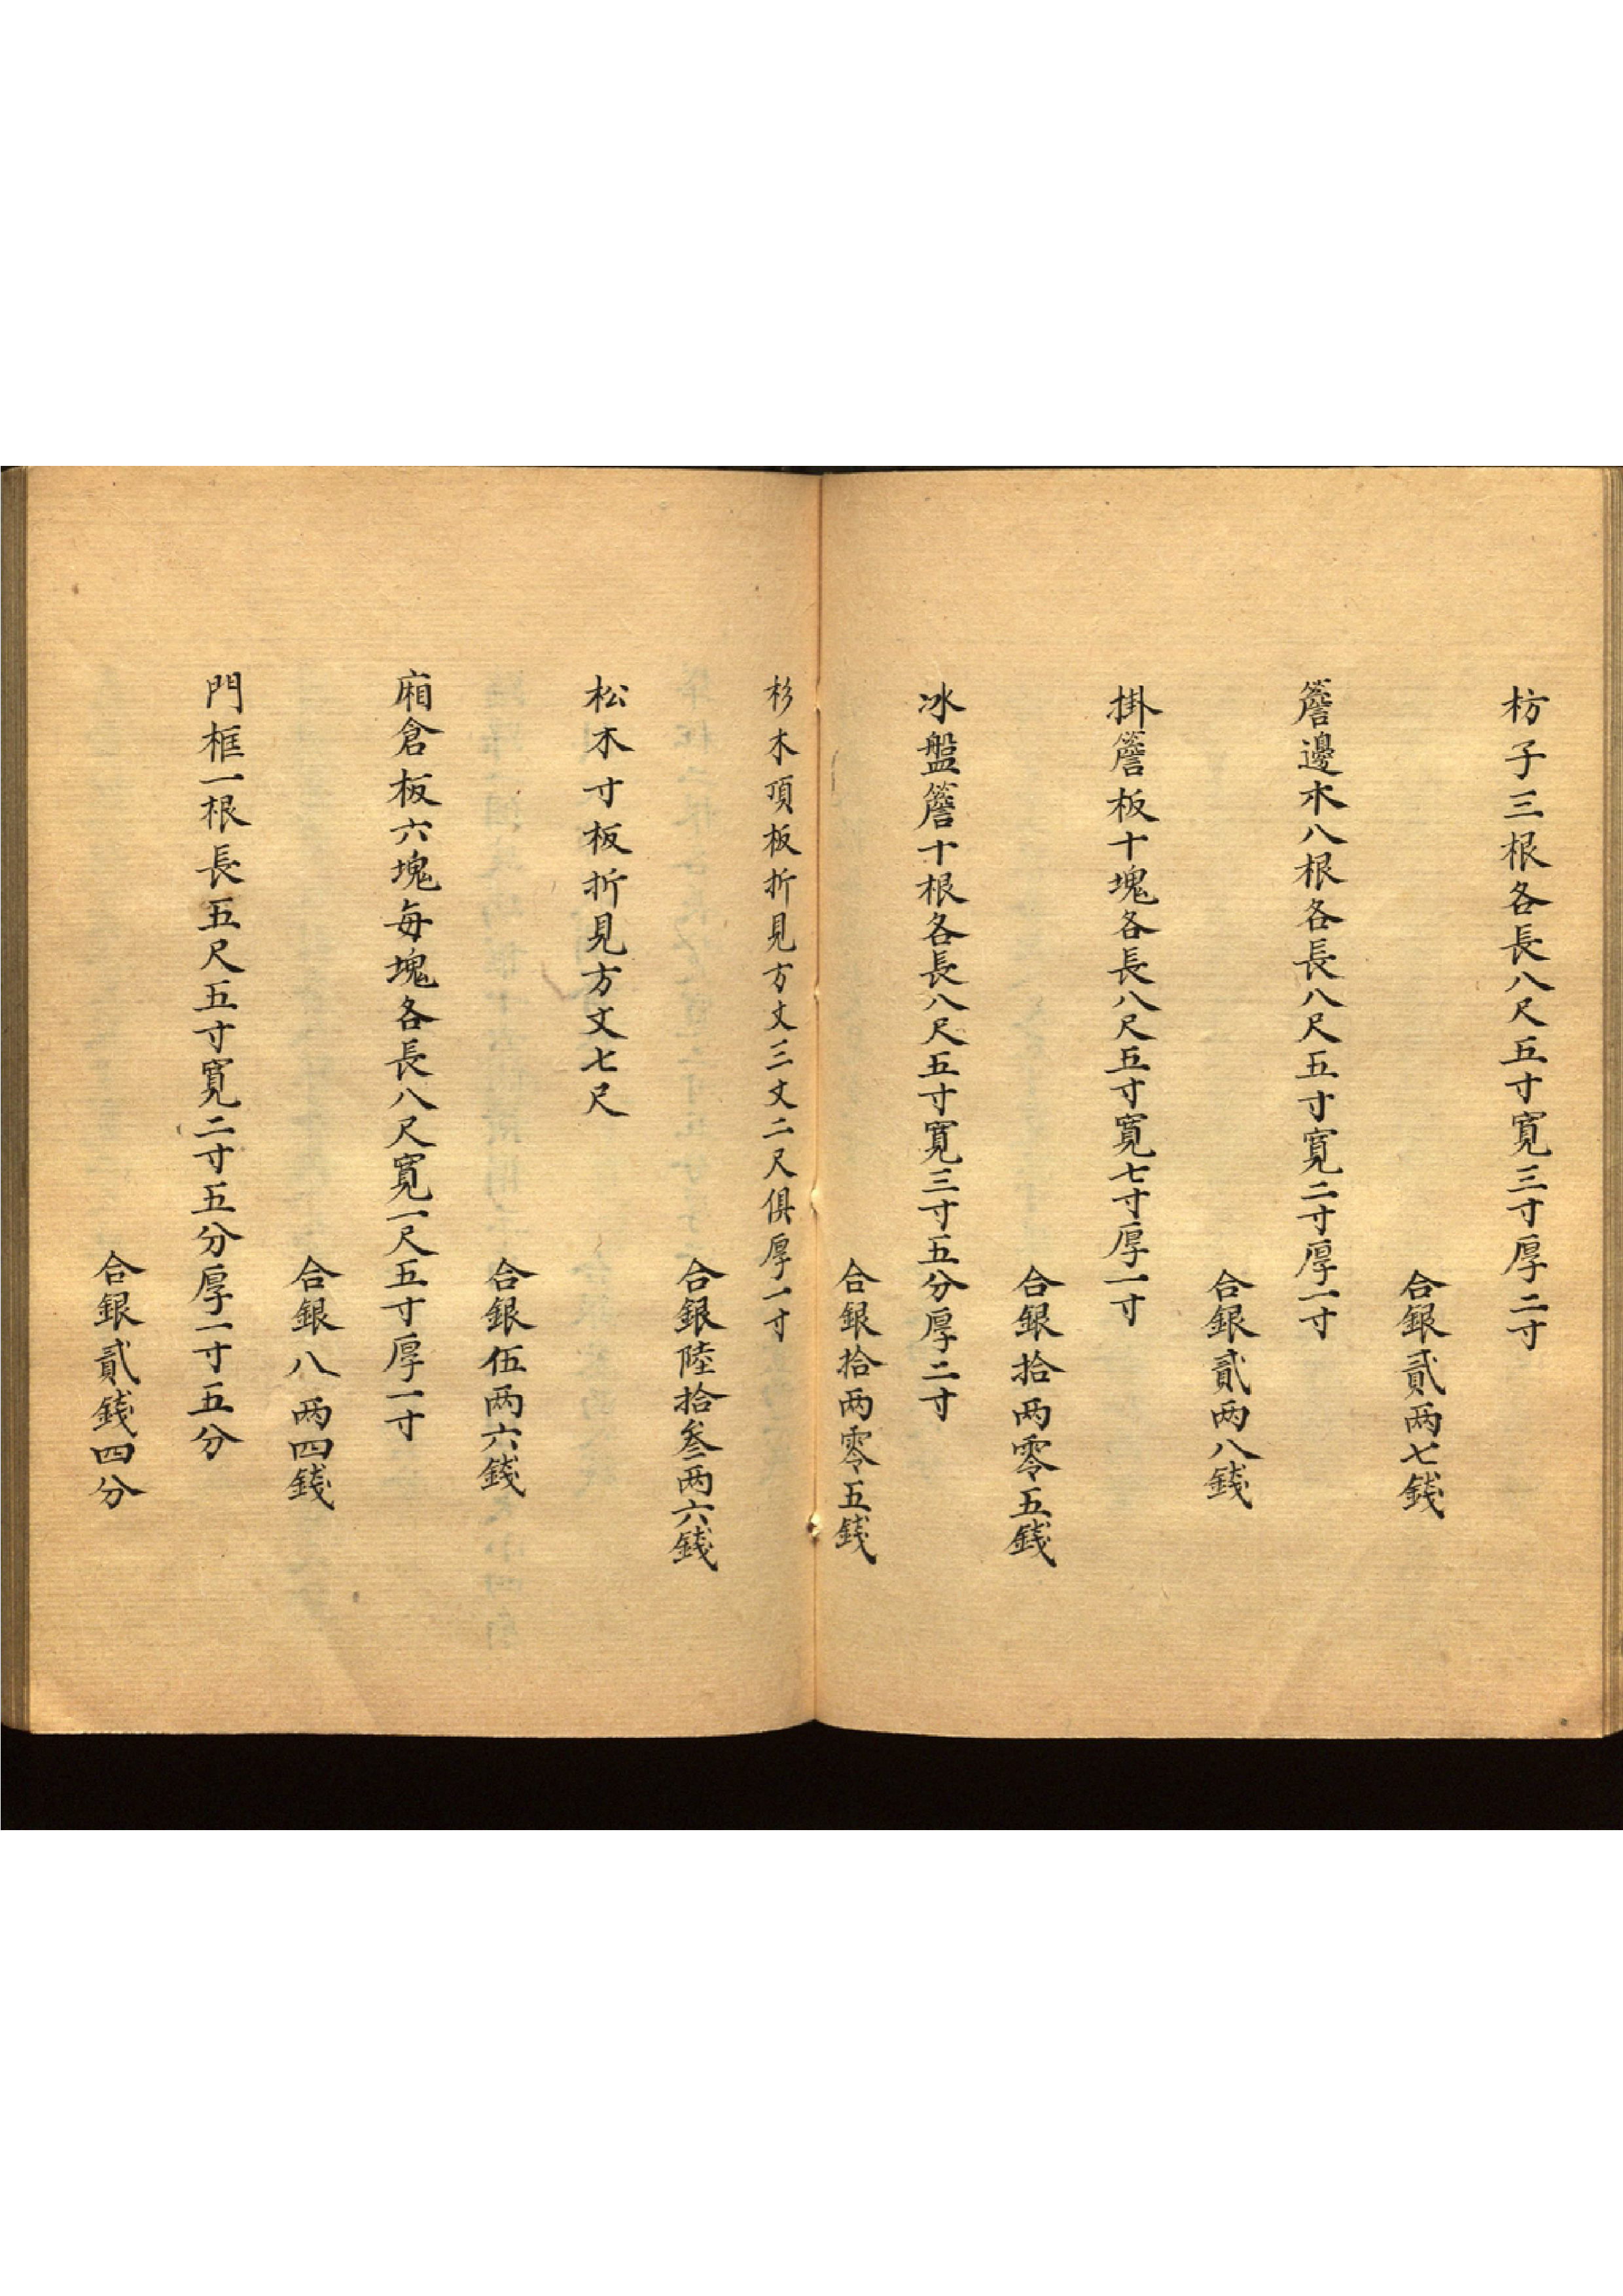 枋子三根各長八尺五寸寛三寸厚二寸
合銀貳两七錢
簷邊木八根各長八尺五寸寛二寸厚一寸
合銀貳两八錢
掛簷板十塊各長八尺五寸寛七寸厚一寸
合銀拾两零五錢
冰盤簷十根各長八尺五寸寛三寸五分厚二寸
合銀拾两零五錢
杉木頂板折見方丈三丈二尺俱厚一寸
合銀陸拾叁两六錢
松木寸板折見方丈七尺
合銀伍两六錢
廂倉板六塊每塊各長八尺寛一尺五寸厚一寸
合銀八两四錢
門框一根長五尺五寸寛二寸五分厚一寸五分
合銀貳錢四分